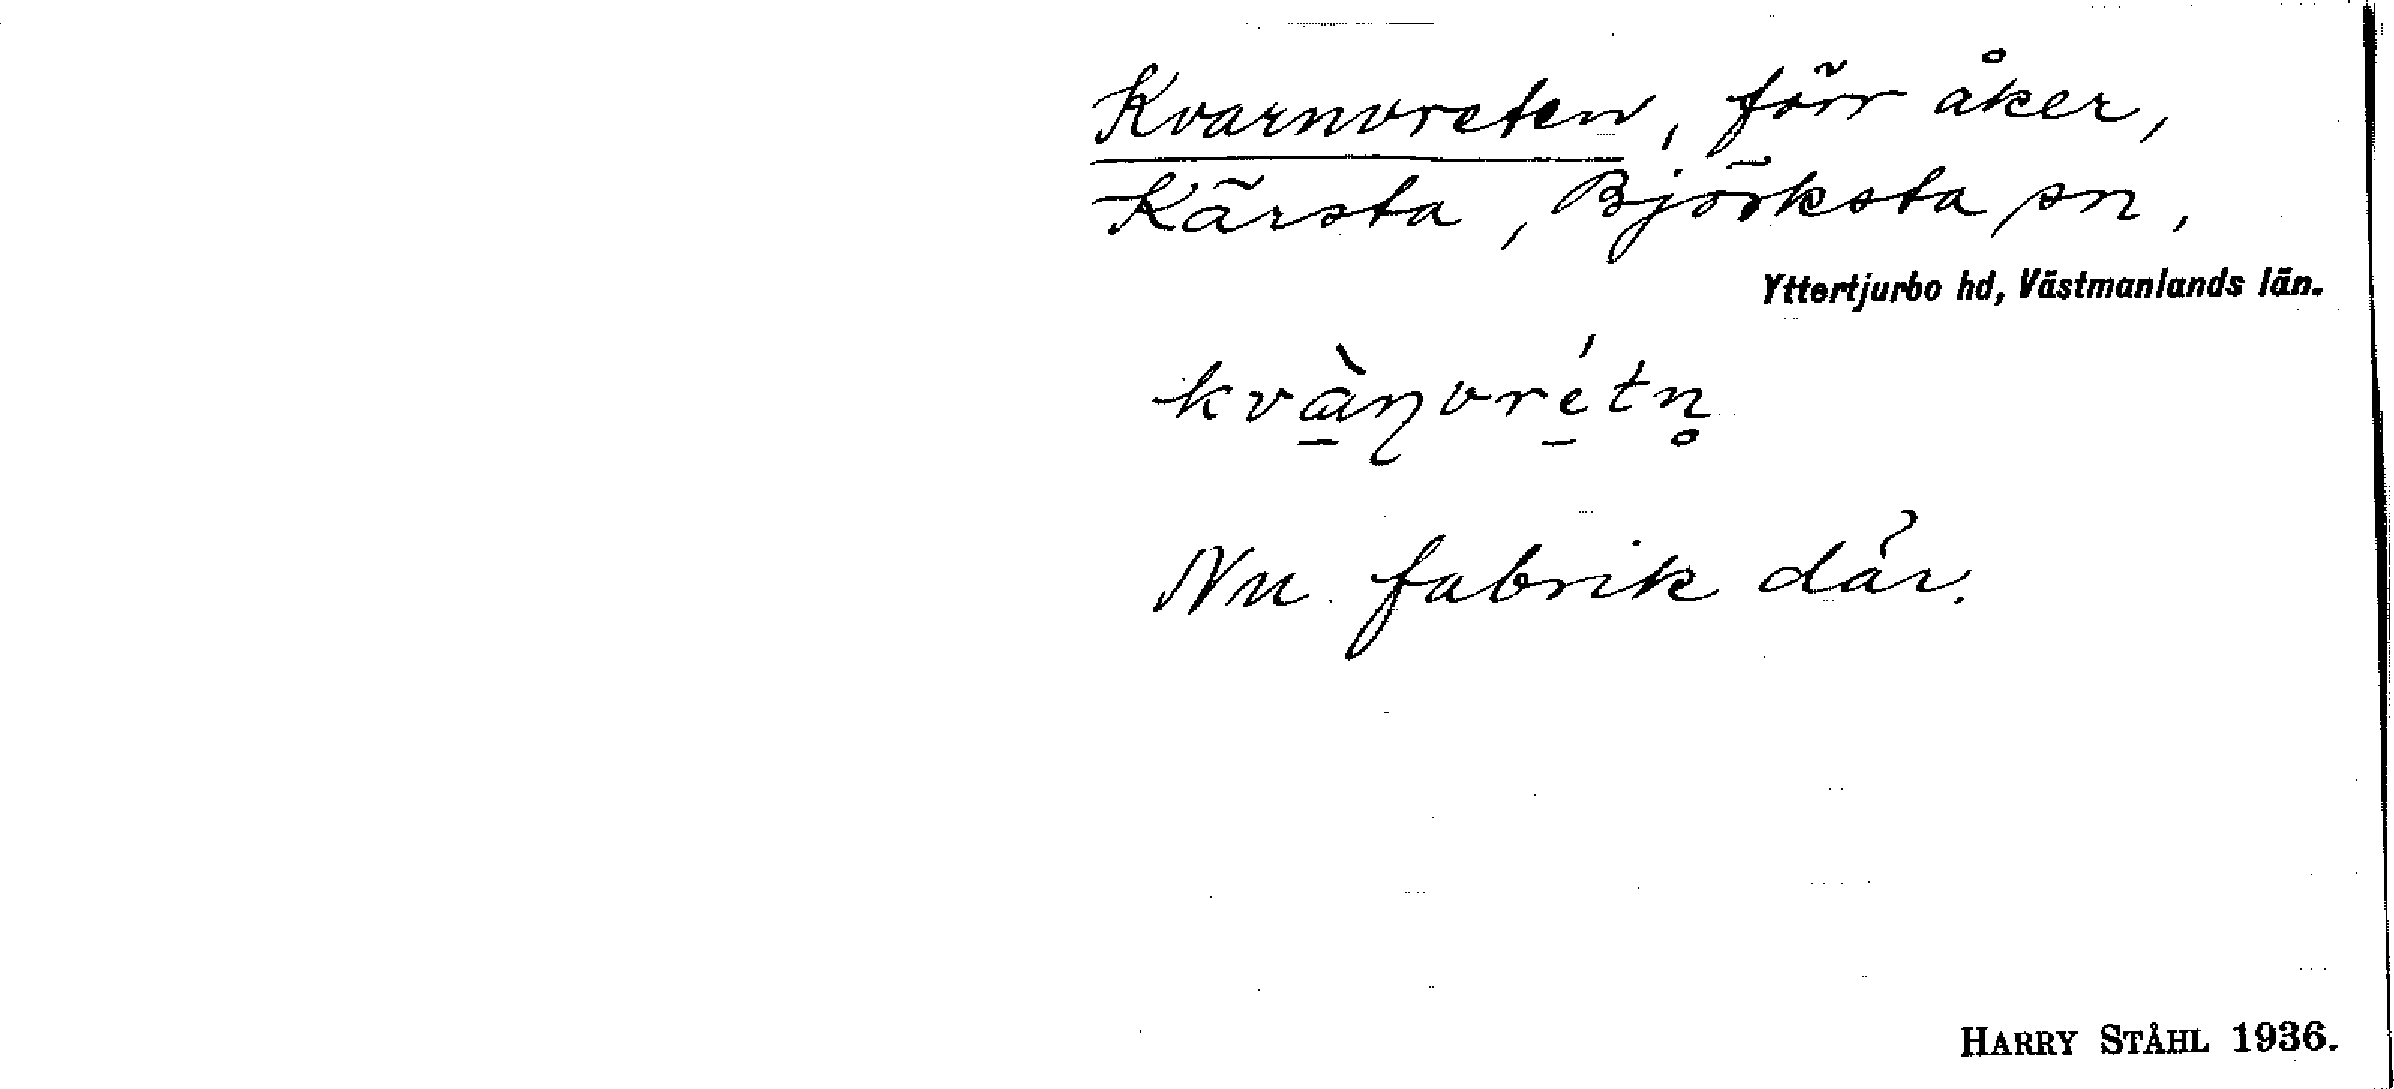 Kvarnvreten, förr åker,
Kärsta, Björksta sn,
Yttertjurbo hd, Västmanlands län.
kvà̱ɳvré̱tn̥
Nu fabrik där.
HARRY STÅHL 1936.